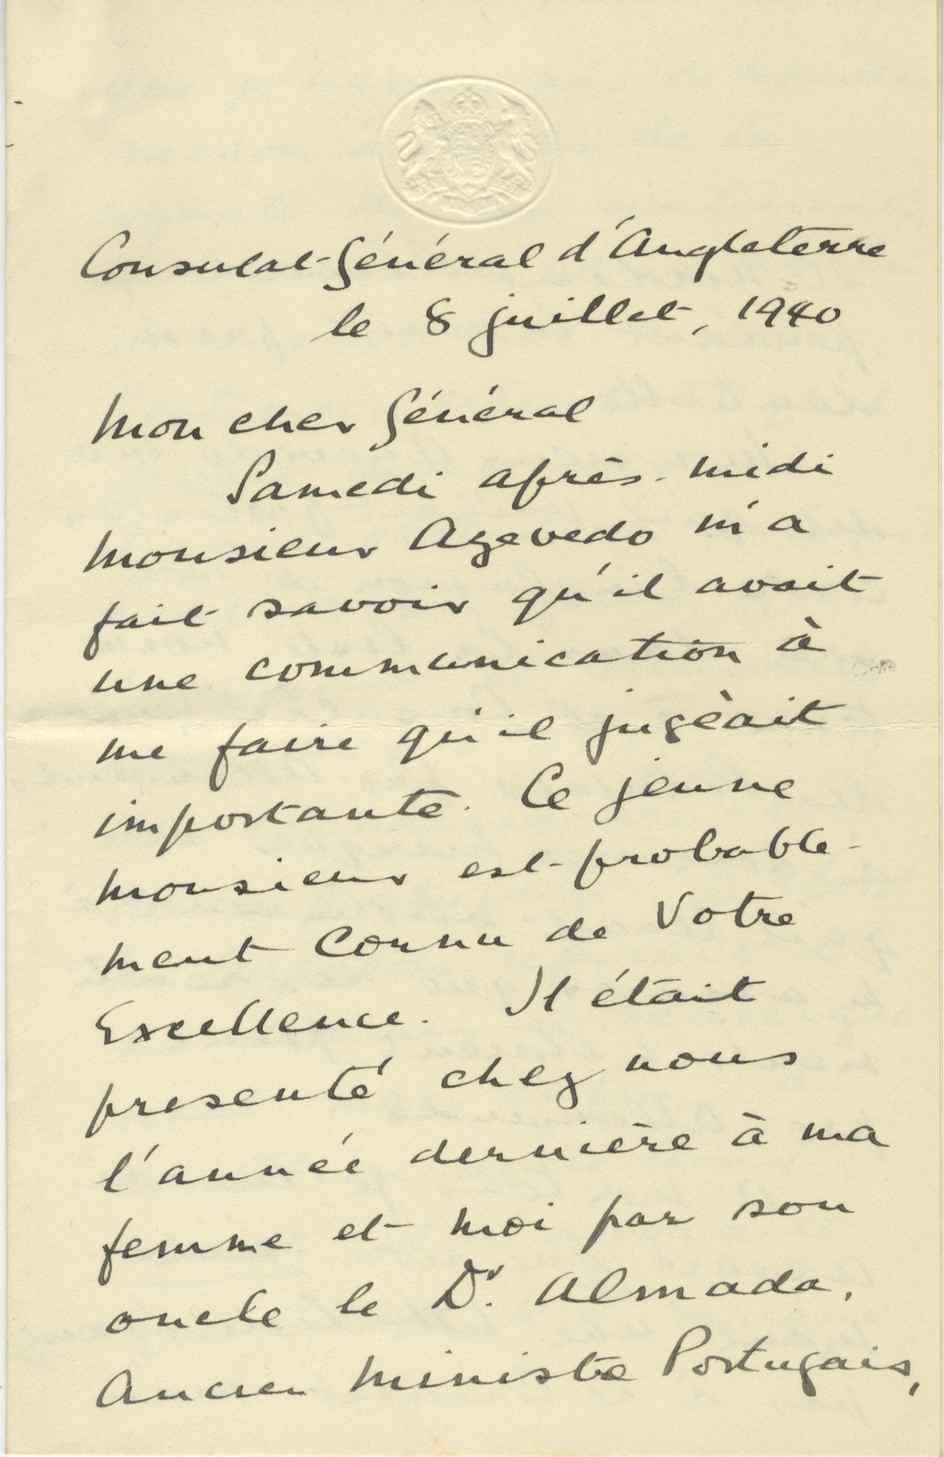 Consulat-Général d'Angleterre
le 8 juillet, 1940
Mon cher Général
Samedi après-midi
Monsieur Azevedo m'a
fait savoir qu'il avait
une communication à
me faire qu'il jugèait
importante. Ce jeune
Monsieur est probable-
ment connu de Votre
Excellence. Il était
presenté chez nous
l'année dernière à ma
femme et moi par son
oncle le Dr. Almada,
Ancien Ministre Portugais,